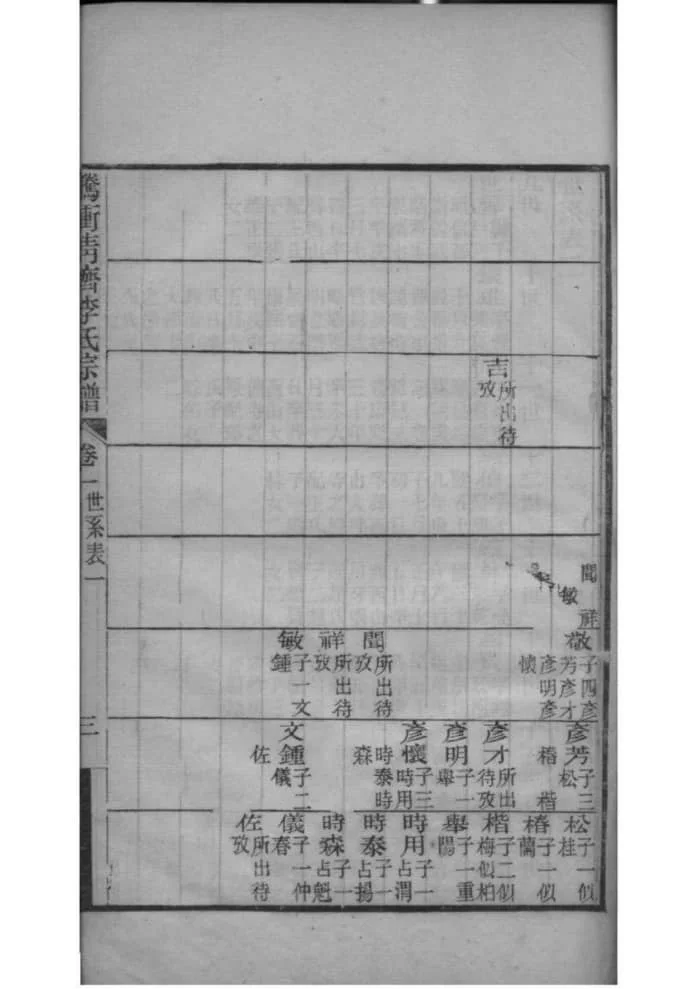 吉
所出待
攷
聞
祥
敏
敬
子四彥
芳彥才
彥明彥
懷
聞
所出待
攷
祥
所出待
攷
敏
子一文
鍾
彥芳
子三
松 楷
椿
彥才
所出
待攷
彥明
子一
舉
彥懷
子三
時用
時泰時
森
文鍾
子二
儀
佐
松
子一似
桂
椿
子一似
蘭
楷
子二似
梅似柏
舉
子一重
陽
時用
子一
占渭
時泰
子一
占揚
時森
子一
占魁
儀
子一仲
春
佐
所出待
攷
騰衝青齊李氏宗譜
卷一世系表一
三